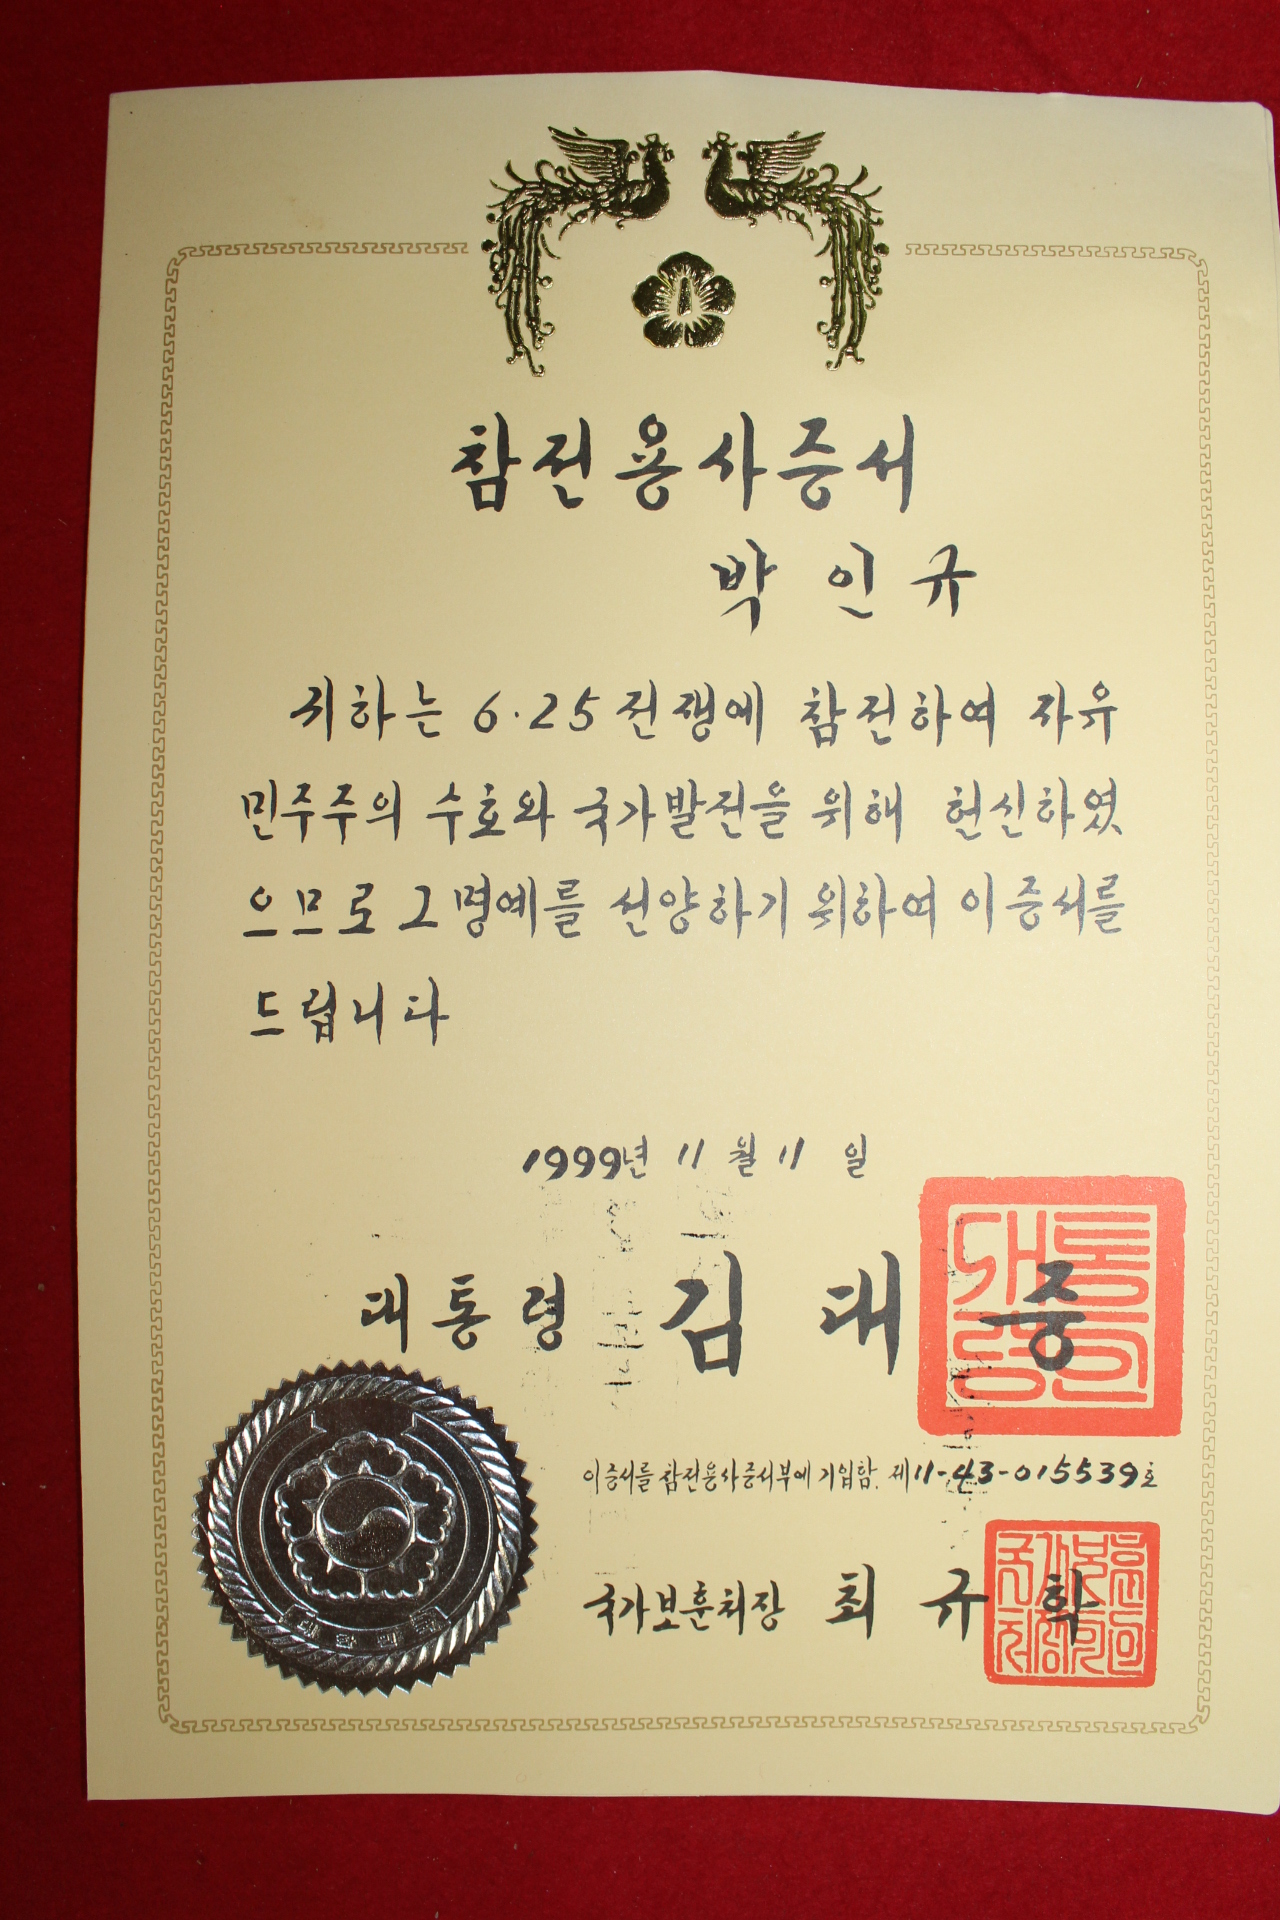 참전용사증서
박 인 규
귀하는 6·25 전쟁에 참전하여 자유
민주주의 수호와 국가발전을 위해 헌신하였
으므로 그 명예를 선양하기 위하여 이 증서를
드립니다
1999년 11 월 11 일
대통령 김 대 중
대통령의인
이 증서를 참전용사증서부에 기입함. 제11-43-015539호
국가보훈처장 최 규 학
대한민국